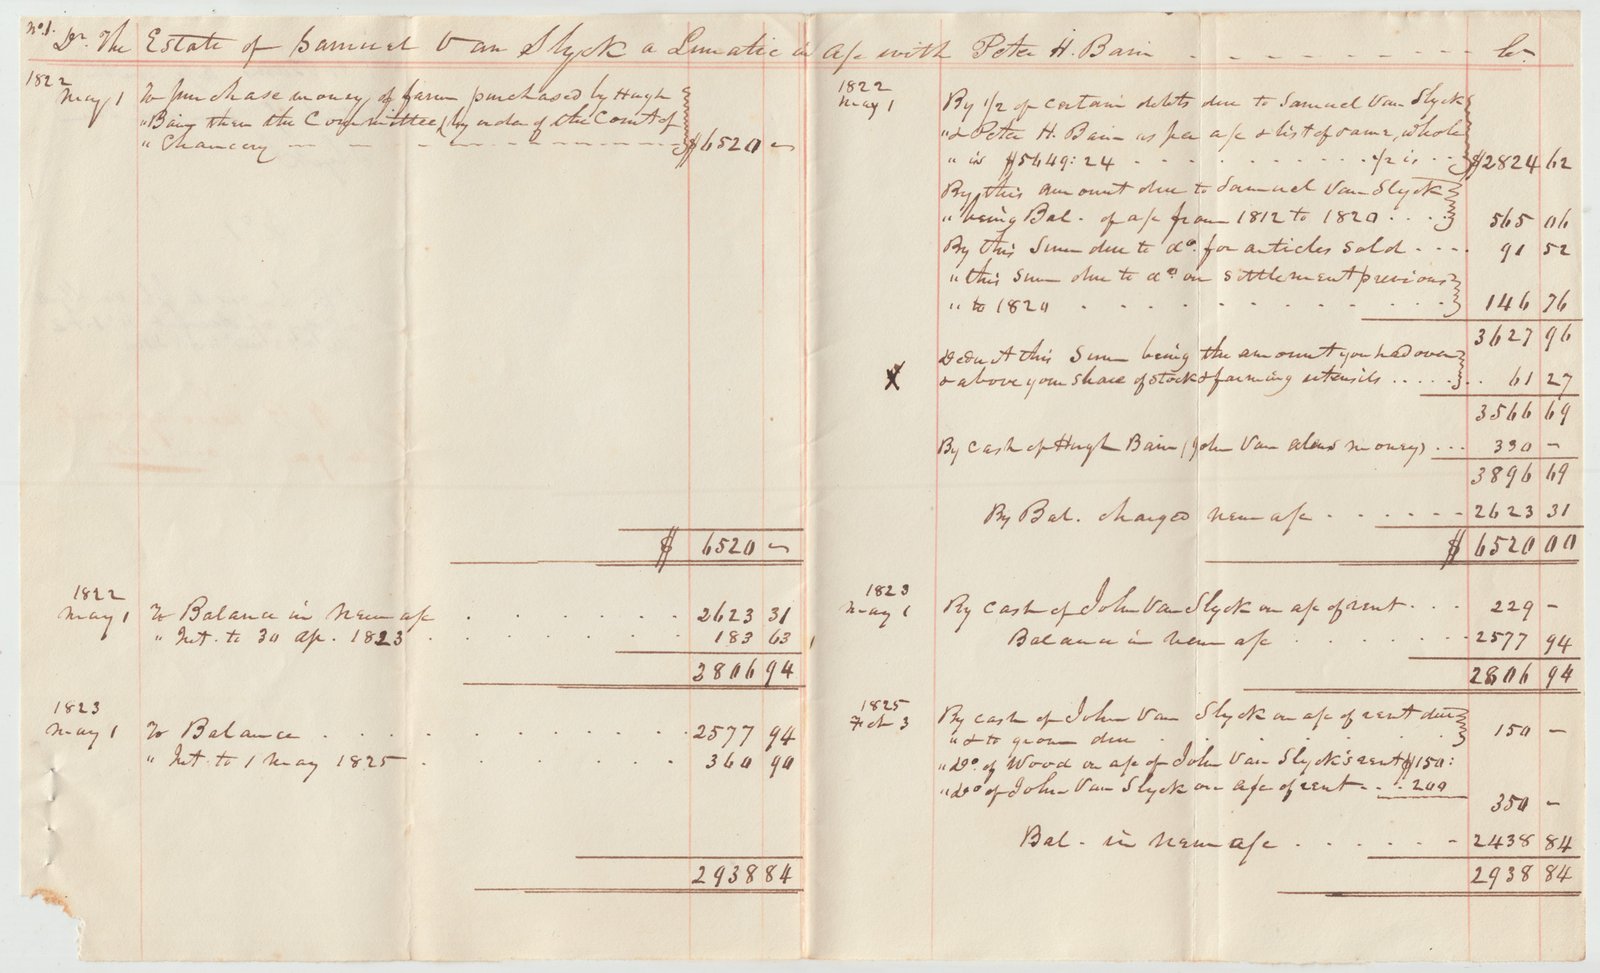 No. 1.
Dr. The Estate of Samuel Van Slyck a Lunatic in a/c with Peter H. Bain - - - - - - Cr.
1822
May 1 To purchase money of farm purchased by Hugh
" Bain then the Committee, by order of the Court of
" Chancery - - - - - - - - - $6520 -
$ 6520 -
1822
May 1 To Balance in new a/c . . . . . . . 2623 31
" Int. to 30 ap. 1823 . . . . . . . 183 63
2806 94
1823
May 1 To Balance . . . . . . . . . . 2577 94
" Int. to 1 May 1825 . . . . . . . 360 90
2938 84
1822
May 1 By 1/2 of certain debts due to Samuel Van Slyck
" & Peter H. Bain as per a/c & list of same, whole
" is $5649:24 . . . . . . . . . . 1/2 is . . . $2824 62
By this amount due to Samuel Van Slyck
" being Bal. of a/c from 1812 to 1820 . . . . 565 06
By this Sum due to do. for articles sold . . . . 91 52
" this Sum due to do. on settlement previous
" to 1820 . . . . . . . . . . . 146 76
3627 96
Deduct this Sum being the amount you had over
X & above your share of stock & farming utensils . . . . . . . 61 27
3566 69
By Cash of Hugh Bain (John Van money) . . . 330 -
3896 69
By Bal. charged new a/c . . . . . . 2623 31
$ 6520 00
1823
May 1 By cash of John Van Slyck on a/c of rent . . . 229 -
Balance in new a/c . . . . . . . 2577 94
2806 94
1825
Feb 3 By cash of John Van Slyck on a/c of rent due
" & to grow due . . . . . . . 150 -
" Do. of Wood on a/c of John Van Slyck's rent $150:
" Do. of John Van Slyck on a/c of rent . . . 200
350 -
Bal. in new a/c . . . . . . 2438 84
2938 84